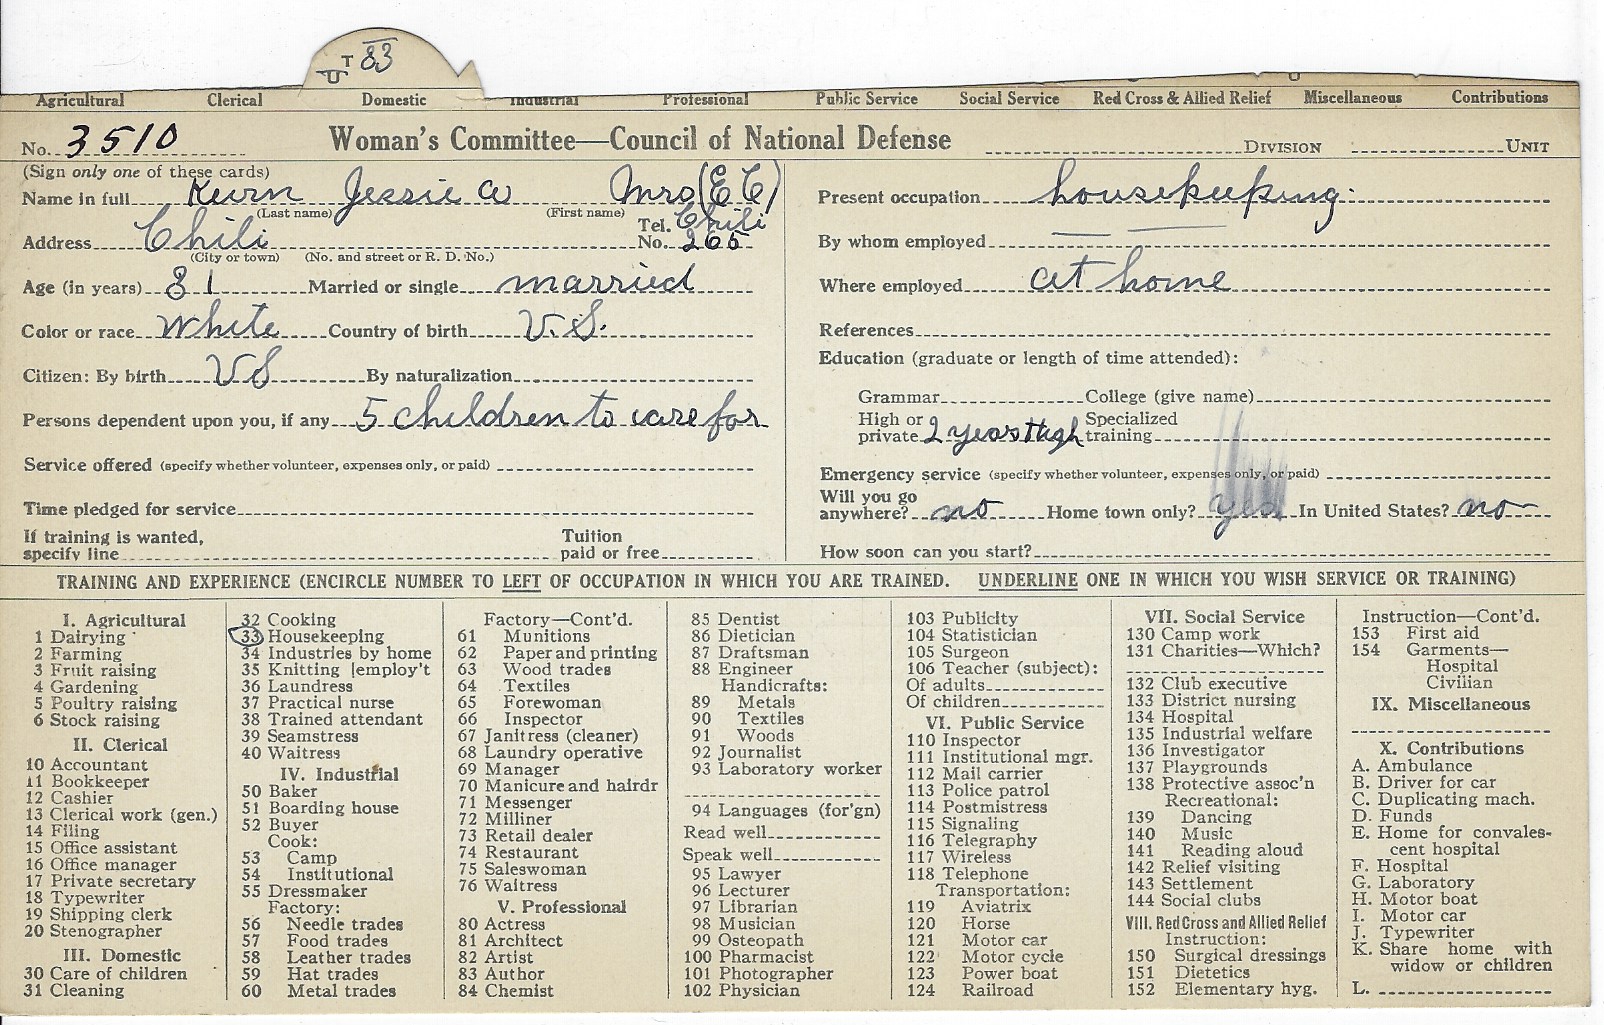 T 83
U
Agricultural Clerical Domestic Industrial Professional Public Service Social Service Red Cross & Allied Relief Miscellaneous Contributions
No. 3510 Woman's Committee—Council of National Defense DIVISION UNIT
(Sign only one of these cards)
Name in full Keirn Jessie A Mrs (E C)
(Last name) (First name)
Address Chili Tel. No. Chili 265
(City or town) (No. and street or R. D. No.)
Age (in years) 31 Married or single married
Color or race White Country of birth U.S.
Citizen: By birth US By naturalization
Persons dependent upon you, if any 5 children to care for
Service offered (specify whether volunteer, expenses only, or paid)
Time pledged for service
If training is wanted, specify line Tuition paid or free
Present occupation housekeeping.
By whom employed
Where employed at home
References
Education (graduate or length of time attended):
Grammar College (give name)
High or private 2 years High Specialized training
Emergency service (specify whether volunteer, expenses only, or paid)
Will you go anywhere? no Home town only? yes In United States? no
How soon can you start?
TRAINING AND EXPERIENCE (ENCIRCLE NUMBER TO LEFT OF OCCUPATION IN WHICH YOU ARE TRAINED. UNDERLINE ONE IN WHICH YOU WISH SERVICE OR TRAINING)
I. Agricultural
1 Dairying
2 Farming
3 Fruit raising
4 Gardening
5 Poultry raising
6 Stock raising
II. Clerical
10 Accountant
11 Bookkeeper
12 Cashier
13 Clerical work (gen.)
14 Filing
15 Office assistant
16 Office manager
17 Private secretary
18 Typewriter
19 Shipping clerk
20 Stenographer
III. Domestic
30 Care of children
31 Cleaning
32 Cooking
33 Housekeeping
34 Industries by home
35 Knitting [employ't
36 Laundress
37 Practical nurse
38 Trained attendant
39 Seamstress
40 Waitress
IV. Industrial
50 Baker
51 Boarding house
52 Buyer
Cook:
53 Camp
54 Institutional
55 Dressmaker
Factory:
56 Needle trades
57 Food trades
58 Leather trades
59 Hat trades
60 Metal trades
Factory—Cont'd.
61 Munitions
62 Paper and printing
63 Wood trades
64 Textiles
65 Forewoman
66 Inspector
67 Janitress (cleaner)
68 Laundry operative
69 Manager
70 Manicure and hairdr
71 Messenger
72 Milliner
73 Retail dealer
74 Restaurant
75 Saleswoman
76 Waitress
V. Professional
80 Actress
81 Architect
82 Artist
83 Author
84 Chemist
85 Dentist
86 Dietician
87 Draftsman
88 Engineer
Handicrafts:
89 Metals
90 Textiles
91 Woods
92 Journalist
93 Laboratory worker
94 Languages (for'gn)
Read well
Speak well
95 Lawyer
96 Lecturer
97 Librarian
98 Musician
99 Osteopath
100 Pharmacist
101 Photographer
102 Physician
103 Publicity
104 Statistician
105 Surgeon
106 Teacher (subject):
Of adults
Of children
VI. Public Service
110 Inspector
111 Institutional mgr.
112 Mail carrier
113 Police patrol
114 Postmistress
115 Signaling
116 Telegraphy
117 Wireless
118 Telephone
Transportation:
119 Aviatrix
120 Horse
121 Motor car
122 Motor cycle
123 Power boat
124 Railroad
VII. Social Service
130 Camp work
131 Charities—Which?
132 Club executive
133 District nursing
134 Hospital
135 Industrial welfare
136 Investigator
137 Playgrounds
138 Protective assoc'n
Recreational:
139 Dancing
140 Music
141 Reading aloud
142 Relief visiting
143 Settlement
144 Social clubs
VIII. Red Cross and Allied Relief
Instruction:
150 Surgical dressings
151 Dietetics
152 Elementary hyg.
Instruction—Cont'd.
153 First aid
154 Garments—
Hospital
Civilian
IX. Miscellaneous
X. Contributions
A. Ambulance
B. Driver for car
C. Duplicating mach.
D. Funds
E. Home for convales-
cent hospital
F. Hospital
G. Laboratory
H. Motor boat
I. Motor car
J. Typewriter
K. Share home with
widow or children
L.